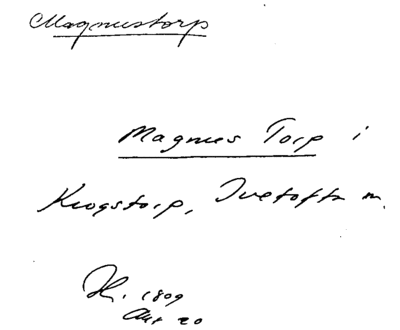 Magnustorp
Magnus Torp i
Krogstorp, Ivetofta sn.
Hf. 1809
Akt 20